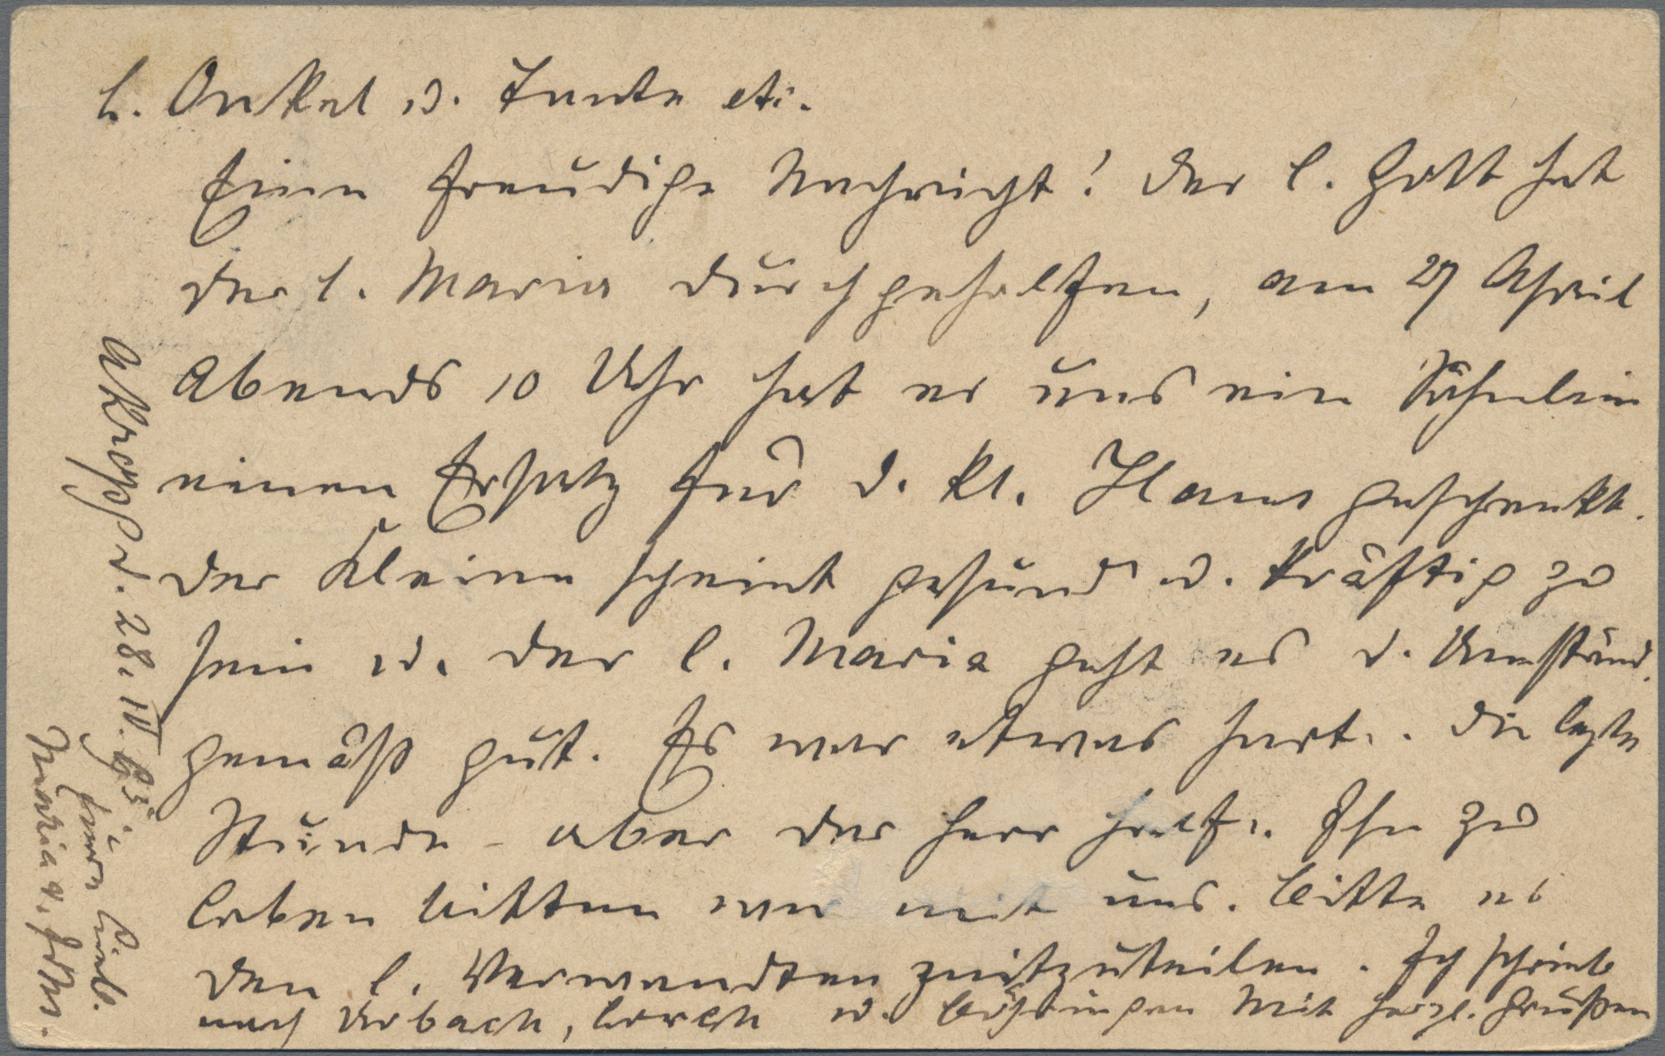 L. Onkel u. Tante etc.
Eine freudige Nachricht! Der l. Gott hat
der l. Maria durchgeholfen, am 27 April
Abends 10 Uhr hat er uns ein Söhnlein
einen Ersatz für d. kl. Hans geschenkt.
Der Kleine scheint gesund u. kräftig zu
sein u. der l. Maria geht es d. Umständ.
gemäß gut. Es war etwas hart.. die lezte
Stunde - aber der Herr half.. Ihn zu
loben bitten wir mit uns. Bitte es
den l. Verwandten mitzuteilen. Ich schreibe
nach Urbach, Lorch u. Mit herzl. Grüßen
Akropp d. 28. IV. 95
Eure lieb.
Maria u.